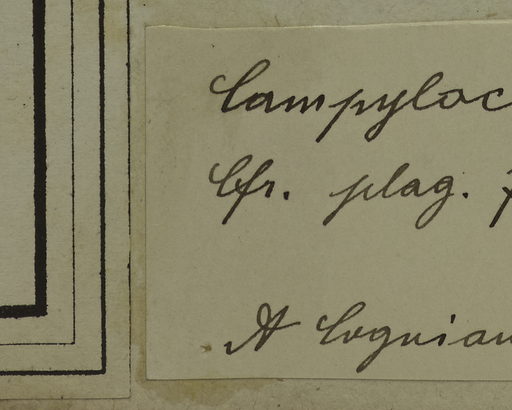 Campyloc
Cfr. plag. f
A Cogniau